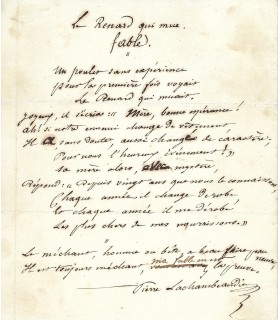 Le Renard qui mue.
fable.
Un poulet sans expérience
Pour la première fois voyait
Le Renard qui muait.
Joyeux, il s'écria: Mère, bonne espérance!
Ah! si notre ennemi change de vêtement
Il a sans doute aussi changé de caractère!
Pour nous l'heureux évènement!"
Sa mère alors,
Répond: "Depuis vingt ans que nous le connaissons,
Chaque année il change de robe
Et chaque année il me dérobe
Les plus chers de mes nourrissons."
Le méchant, homme ou bête, a beau faire peau neuve,
Il est toujours méchant, la preuve.
Pierre Lachambeaudie